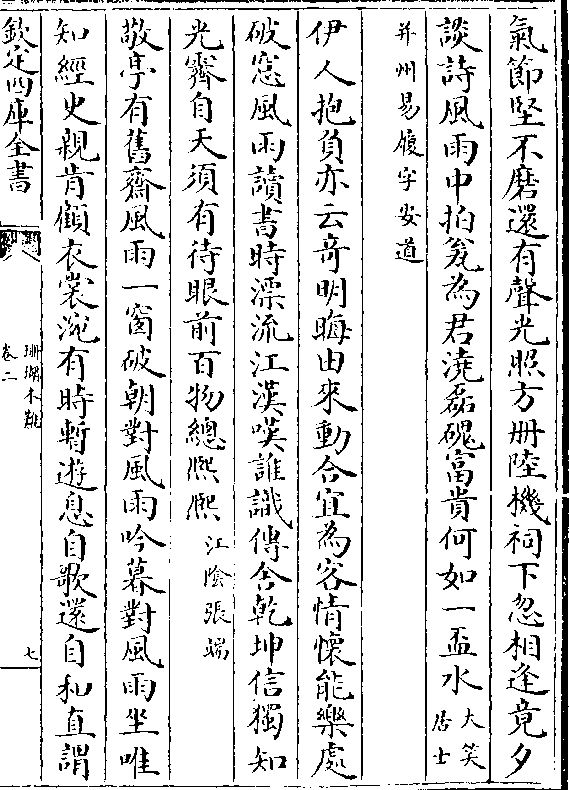 氣節堅不磨還有聲光照方冊陸機祠下忽相逢竟夕
談詩風雨中拍瓮為君澆磊磈富貴何如一盃水大笑居士
并州易履字安道
伊人抱負亦云奇明晦由來動合宜為客情懷能樂處
破窓風雨讀書時漂流江漢嘆誰識傳舍乾坤信獨知
光霽自天須有待眼前百物總熈熈江隂張端
敬亭有舊齋風雨一窗破朝對風雨吟暮對風雨坐唯
知經史親肯顧衣裳涴有時暫遊息自歌還自和直謂
欽定四庫全書
珊瑚木難
卷二
七